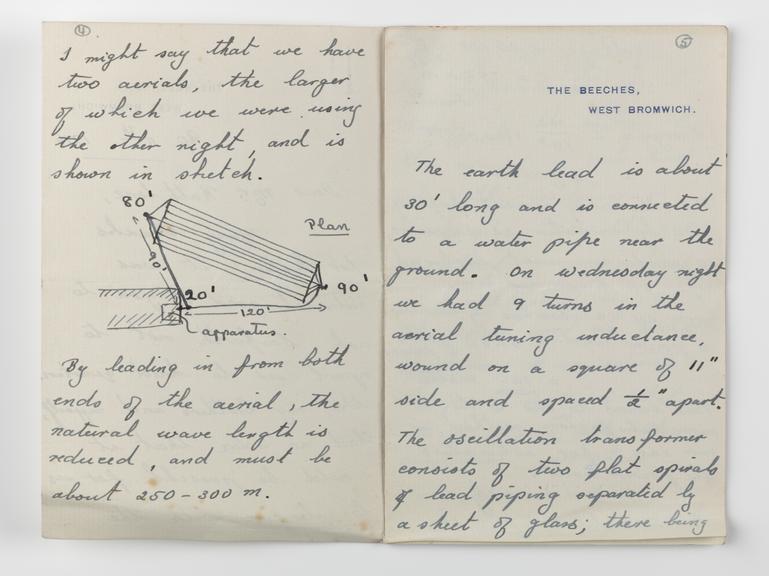 4
I might say that we have
two aerials, the larger
of which we were using
the other night, and is
shown in sketch.
80'
Plan
90'
20'
90'
120'
apparatus.
By leading in from both
ends of the aerial, the
natural wave length is
reduced, and must be
about 250-300 m.
5
THE BEECHES,
WEST BROMWICH.
The earth lead is about
30' long and is connected
to a water pipe near the
ground. On wednesday night
we had 9 turns in the
aerial tuning inductance,
wound on a square of 11"
side and spaced 1/2" apart.
The oscillation transformer
consists of two flat spirals
of lead piping separated by
a sheet of glass; there being